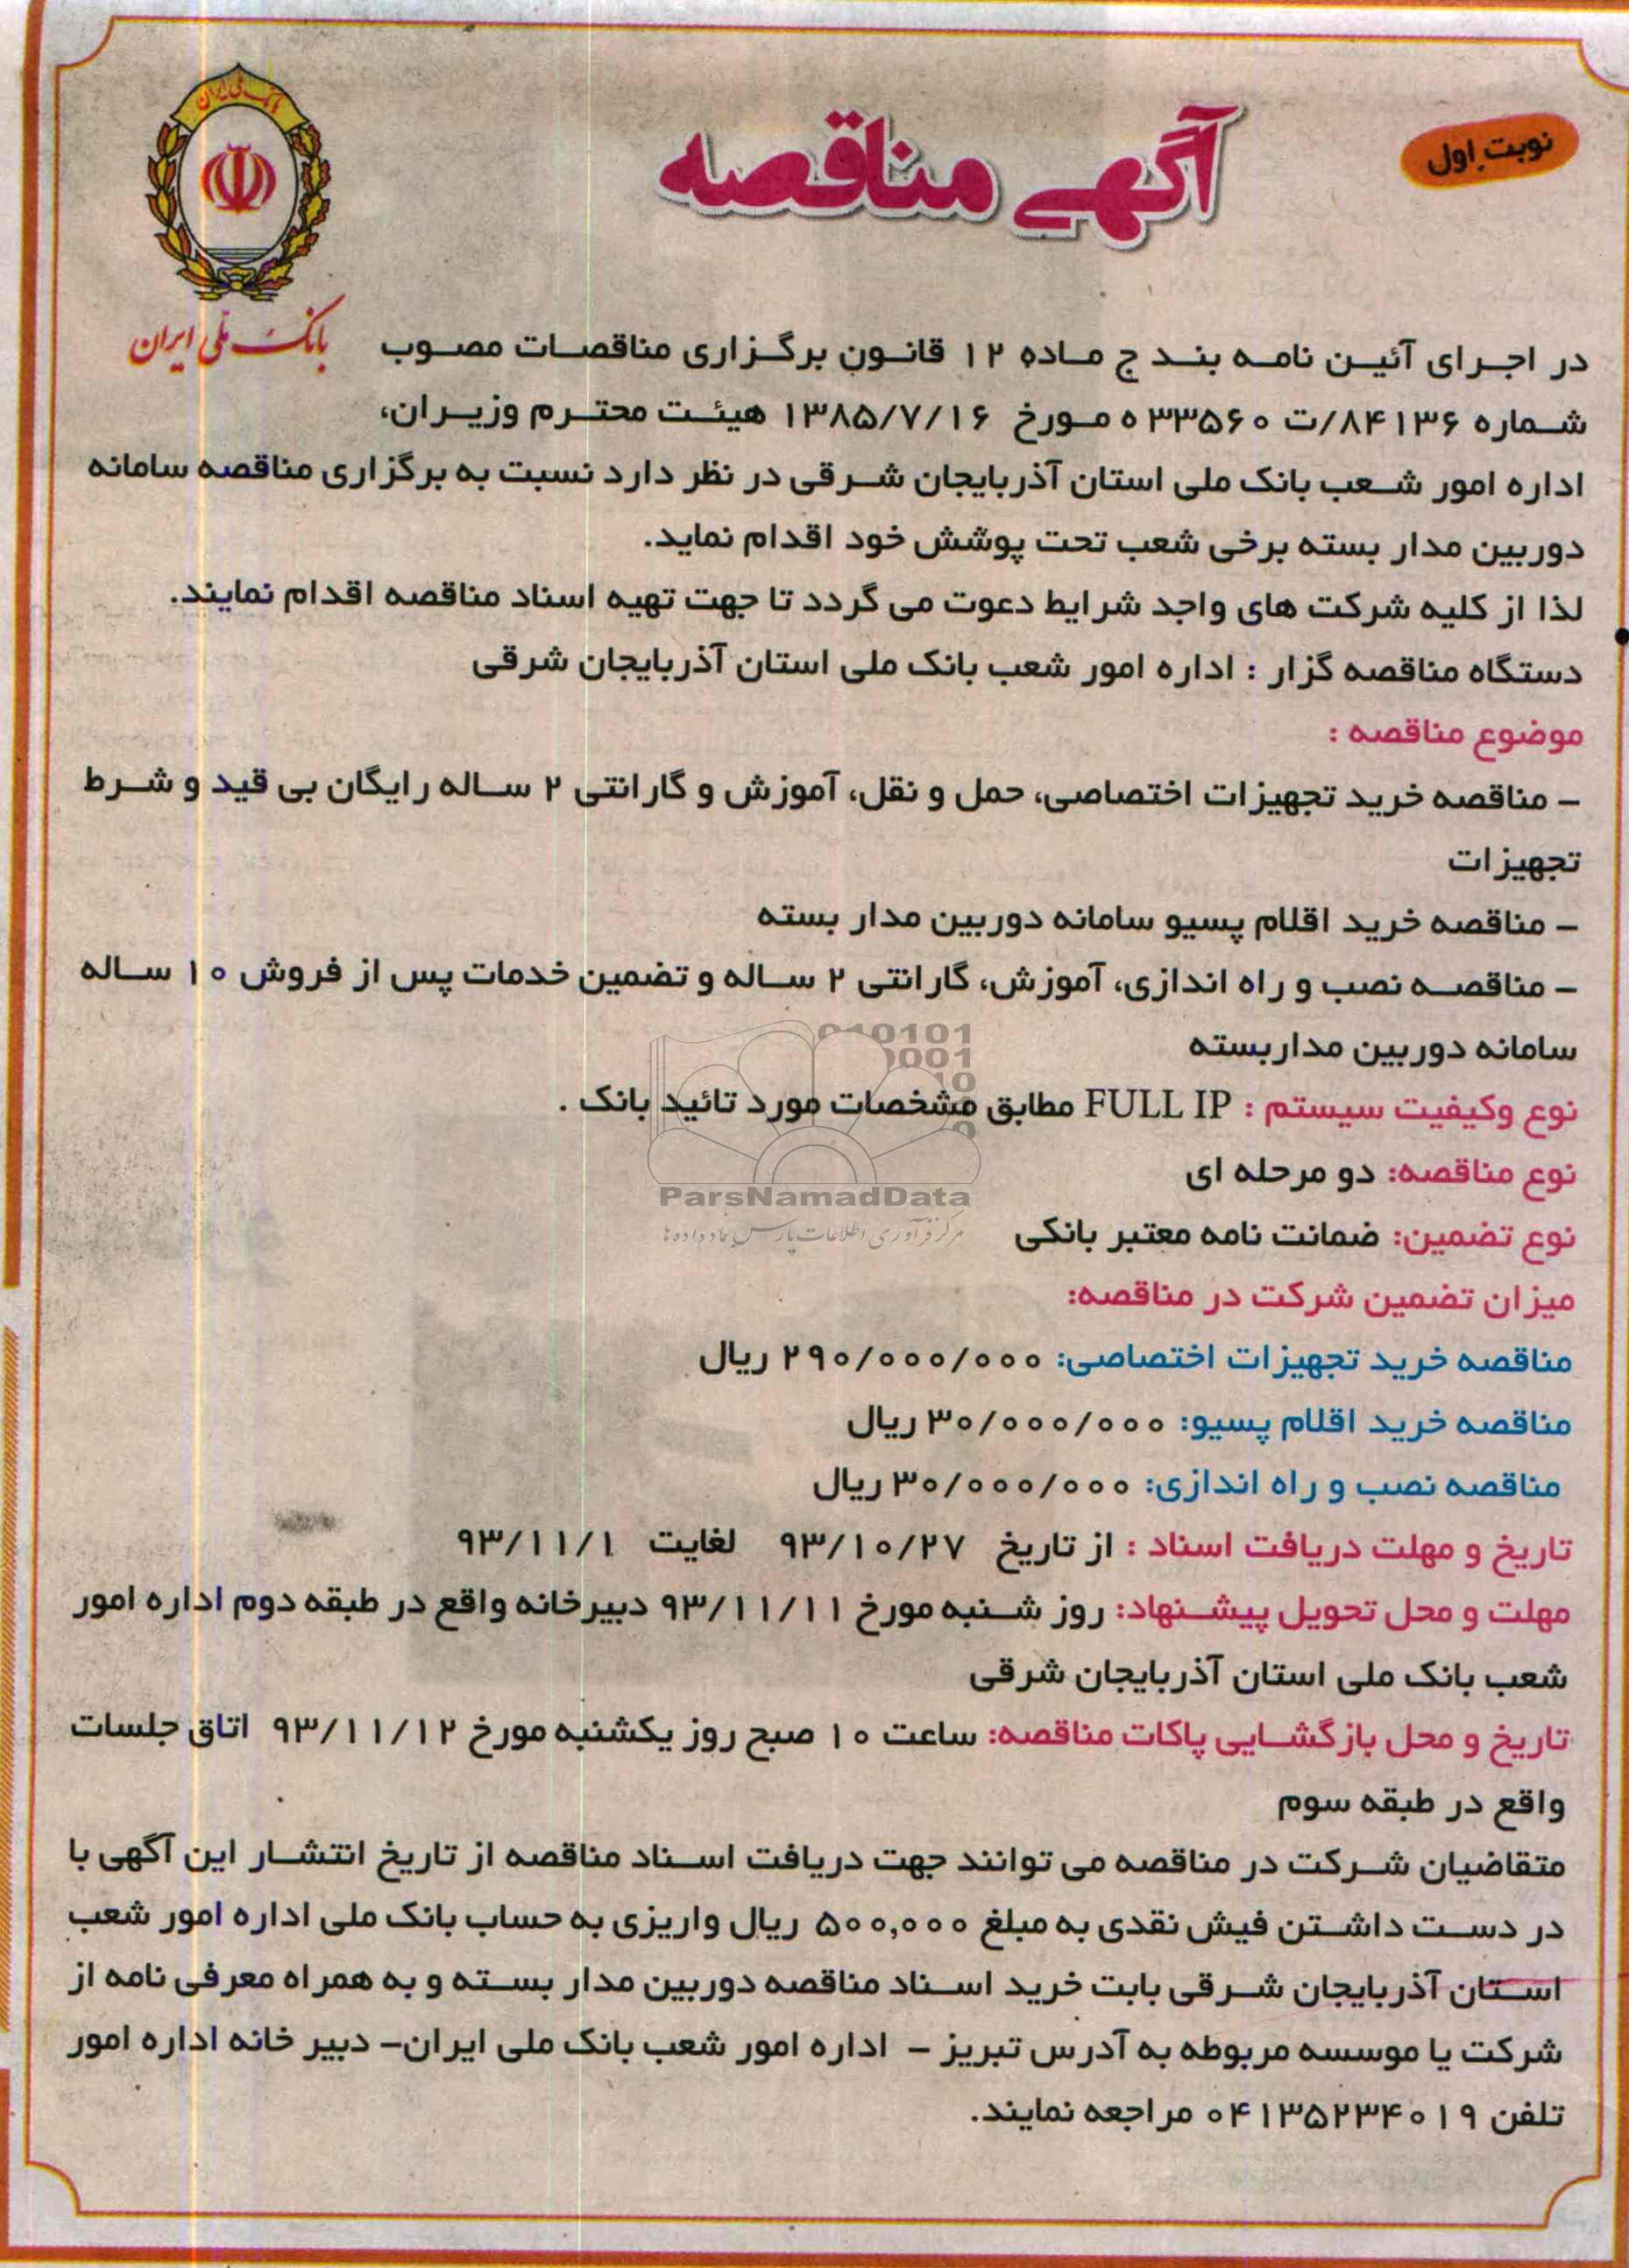 نوبت اول
آگهی مناقصه
بانک ملی ایران
بانک ملی ایران
در اجرای آئین نامه بند ج ماده ۱۲ قانون برگزاری مناقصات مصوب
شماره ۸۴۱۳۶/ت ۳۳۵۶۰ ه مورخ ۱۳۸۵/۷/۱۶ هیئت محترم وزیران،
اداره امور شعب بانک ملی استان آذربایجان شرقی در نظر دارد نسبت به برگزاری مناقصه سامانه
دوربین مدار بسته برخی شعب تحت پوشش خود اقدام نماید.
لذا از کلیه شرکت های واجد شرایط دعوت می گردد تا جهت تهیه اسناد مناقصه اقدام نمایند.
دستگاه مناقصه گزار : اداره امور شعب بانک ملی استان آذربایجان شرقی
موضوع مناقصه :
– مناقصه خرید تجهیزات اختصاصی، حمل و نقل، آموزش و گارانتی ۲ ساله رایگان بی قید و شرط
تجهیزات
– مناقصه خرید اقلام پسیو سامانه دوربین مدار بسته
– مناقصه نصب و راه اندازی، آموزش، گارانتی ۲ ساله و تضمین خدمات پس از فروش ۱۰ ساله
سامانه دوربین مداربسته
نوع وکیفیت سیستم : FULL IP مطابق مشخصات مورد تائید بانک .
نوع مناقصه: دو مرحله ای
ParsNamadData
مرکز فرآوری اطلاعات پارس نماد داده ها
نوع تضمین: ضمانت نامه معتبر بانکی
میزان تضمین شرکت در مناقصه:
مناقصه خرید تجهیزات اختصاصی: ۲۹۰/۰۰۰/۰۰۰ ریال
مناقصه خرید اقلام پسیو: ۳۰/۰۰۰/۰۰۰ ریال
مناقصه نصب و راه اندازی: ۳۰/۰۰۰/۰۰۰ ریال
تاریخ و مهلت دریافت اسناد : از تاریخ ۹۳/۱۰/۲۷ لغایت ۹۳/۱۱/۱
مهلت و محل تحویل پیشنهاد: روز شنبه مورخ ۹۳/۱۱/۱۱ دبیرخانه واقع در طبقه دوم اداره امور
شعب بانک ملی استان آذربایجان شرقی
تاریخ و محل بازگشایی پاکات مناقصه: ساعت ۱۰ صبح روز یکشنبه مورخ ۹۳/۱۱/۱۲ اتاق جلسات
واقع در طبقه سوم
متقاضیان شرکت در مناقصه می توانند جهت دریافت اسناد مناقصه از تاریخ انتشار این آگهی با
در دست داشتن فیش نقدی به مبلغ ۵۰۰,۰۰۰ ریال واریزی به حساب بانک ملی اداره امور شعب
استان آذربایجان شرقی بابت خرید اسناد مناقصه دوربین مدار بسته و به همراه معرفی نامه از
شرکت یا موسسه مربوطه به آدرس تبریز – اداره امور شعب بانک ملی ایران– دبیر خانه اداره امور
تلفن ۰۴۱۳۵۲۳۴۰۱۹ مراجعه نمایند.